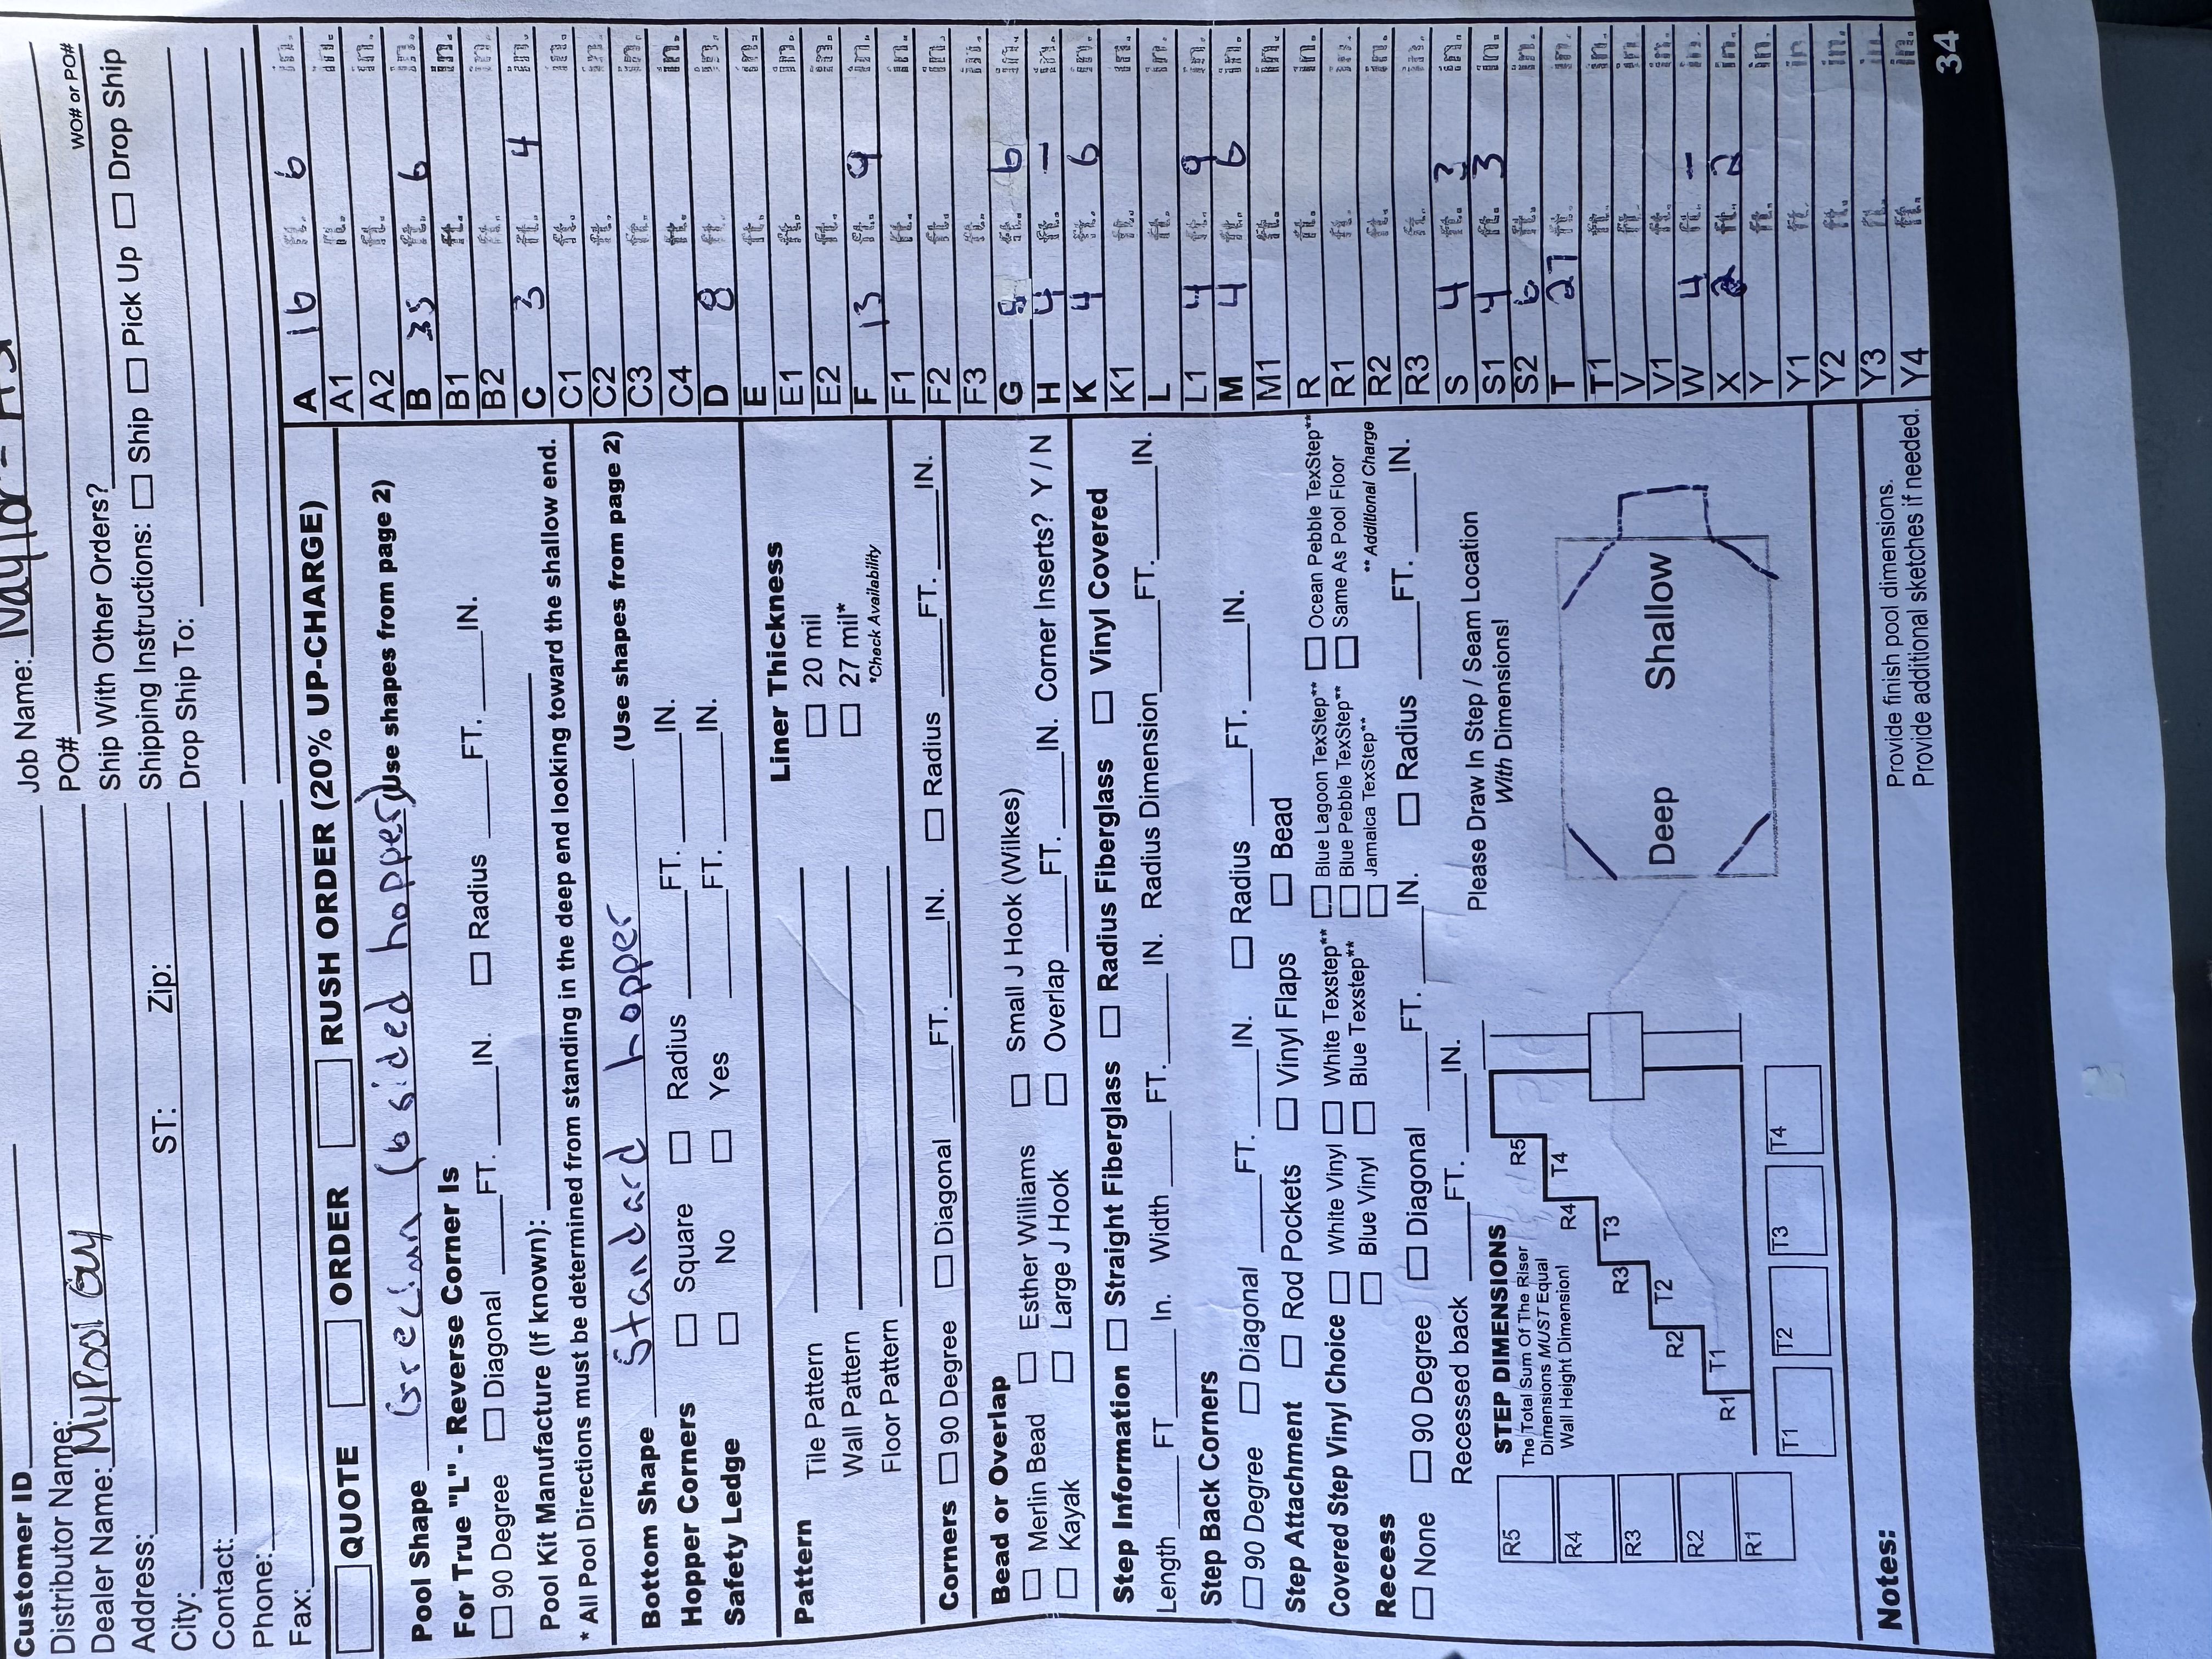 Customer ID
Distributor Name:
Dealer Name: My Pool Guy
Address:
City: ST: Zip:
Contact:
Phone:
Fax:
Job Name: Naylor -
PO# WO# or PO#
Ship With Other Orders?
Shipping Instructions: Ship Pick Up Drop Ship
Drop Ship To:
QUOTE ORDER RUSH ORDER (20% UP-CHARGE)
Pool Shape Grecian (6 sided hopper) (Use shapes from page 2)
For True "L" - Reverse Corner Is
90 Degree Diagonal FT. IN. Radius FT. IN.
Pool Kit Manufacture (If known):
* All Pool Directions must be determined from standing in the deep end looking toward the shallow end.
Bottom Shape Standard hopper (Use shapes from page 2)
Hopper Corners Square Radius FT. IN.
Safety Ledge No Yes FT. IN.
Pattern
Tile Pattern
Wall Pattern
Floor Pattern
Liner Thickness
20 mil
27 mil*
*Check Availability
Corners 90 Degree Diagonal FT. IN. Radius FT. IN.
Bead or Overlap
Merlin Bead Esther Williams Small J Hook (Wilkes)
Kayak Large J Hook Overlap FT. IN. Corner Inserts? Y / N
Step Information Straight Fiberglass Radius Fiberglass Vinyl Covered
Length FT In. Width FT. IN. Radius Dimension FT. IN.
Step Back Corners
90 Degree Diagonal FT. IN. Radius FT. IN.
Step Attachment Rod Pockets Vinyl Flaps Bead
Covered Step Vinyl Choice White Vinyl White Texstep** Blue Lagoon TexStep** Ocean Pebble TexStep**
Blue Vinyl Blue Texstep** Blue Pebble TexStep** Same As Pool Floor
Jamaica TexStep** ** Additional Charge
Recess
None 90 Degree Diagonal FT. IN. Radius FT. IN.
Recessed back FT. IN.
STEP DIMENSIONS
The Total Sum Of The Riser
Dimensions MUST Equal
Wall Height Dimension!
R5
R4
R3
R2
R1
R5
T4
R4
T3
R3
T2
R2
T1
R1
T1 T2 T3 T4
Please Draw In Step / Seam Location
With Dimensions!
Deep Shallow
Notes:
Provide finish pool dimensions.
Provide additional sketches if needed.
A 16 ft. 6 in.
A1 ft. in.
A2 ft. in.
B 35 ft. 6 in.
B1 ft. in.
B2 ft. in.
C 3 ft. 4 in.
C1 ft. in.
C2 ft. in.
C3 ft. in.
C4 ft. in.
D 8 ft. in.
E ft. in.
E1 ft. in.
E2 ft. in.
F 13 ft. 9 in.
F1 ft. in.
F2 ft. in.
F3 ft. in.
G ft. 6 in.
H 4 ft. - in.
K 4 ft. 6 in.
K1 ft. in.
L ft. in.
L1 4 ft. 9 in.
M 4 ft. 6 in.
M1 ft. in.
R ft. in.
R1 ft. in.
R2 ft. in.
R3 ft. in.
S 4 ft. 3 in.
S1 4 ft. 3 in.
S2 6 ft. in.
T 27 ft. in.
T1 ft. in.
V ft. in.
V1 ft. in.
W 4 ft. - in.
X 2 ft. 2 in.
Y ft. in.
Y1 ft. in
Y2 ft. in.
Y3 ft. in
Y4 ft. in.
34